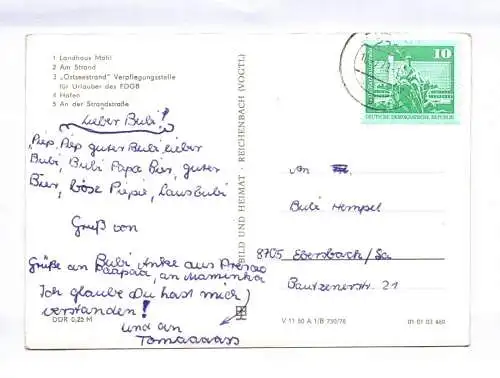 1 Landhaus Mohl
2 Am Strand
3 „Ostseestrand" Verpflegungsstelle
für Urlauber des FDGB
4 Hafen
5 An der Strandstraße
Lieber Bubi!
Piep, Piep guter Bubi, lieber
Bubi, Bubi Papa Bier, guter
Bier, böse Piepie, Lausbubi
Gruß von
Bubi Anke aus
Grüße an Paapaa, an Maminka
Ich glaube Du hast mich
verstanden!
und an
Tomaaaass
DDR 0,25 M
BILD UND HEIMAT · REICHENBACH (VOGTL)
10
DEUTSCHE DEMOKRATISCHE REPUBLIK
An
Bubi Hempel
8705 Ebersbach/Sa.
Bautzenerstr. 21
V 11 50 A 1/B 730/76
01 01 03 460